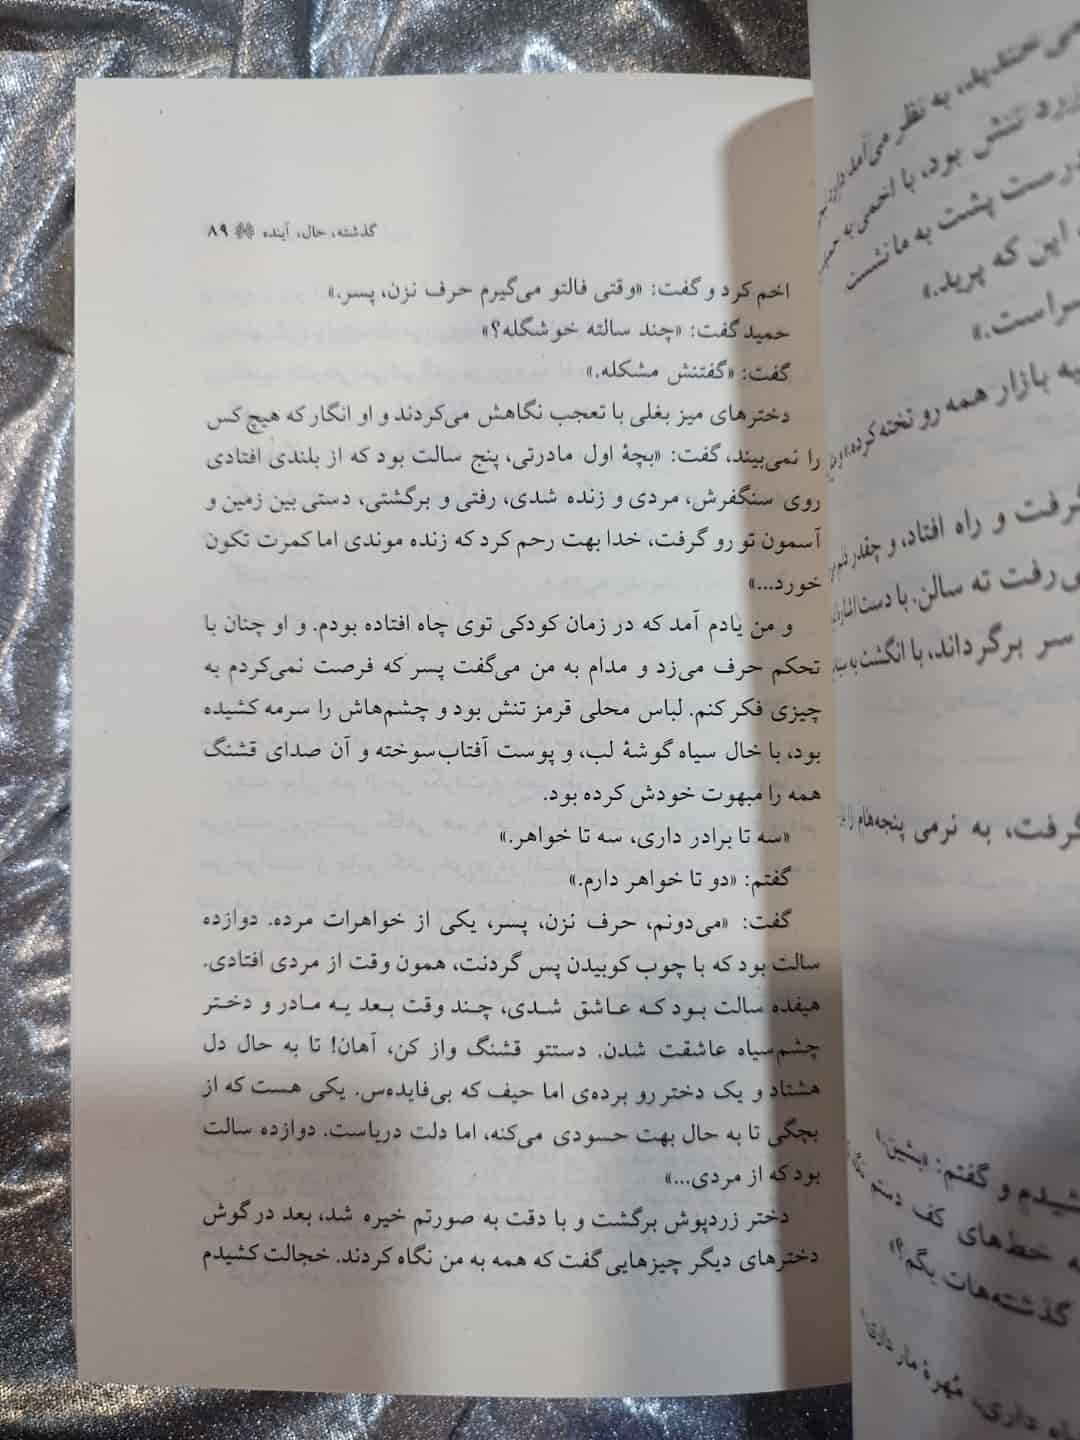 گذشته، حال، آینده ۸۹
اخم کرد و گفت: «وقتی فالتو می‌گیرم حرف نزن، پسر.»
حمید گفت: «چند سالته خوشگله؟»
گفت: «گفتنش مشکله.»
دخترهای میز بغلی با تعجب نگاهش می‌کردند و او انگار که هیچ کس
را نمی‌بیند، گفت: «بچهٔ اول مادرتی، پنج سالت بود که از بلندی افتادی
روی سنگفرش، مردی و زنده شدی، رفتی و برگشتی، دستی بین زمین و
آسمون تو رو گرفت، خدا بهت رحم کرد که زنده موندی اما کمرت تکون
خورد...»
و من یادم آمد که در زمان کودکی توی چاه افتاده بودم. و او چنان با
تحکم حرف می‌زد و مدام به من می‌گفت پسر که فرصت نمی‌کردم به
چیزی فکر کنم. لباس محلی قرمز تنش بود و چشم‌هاش را سرمه کشیده
بود، با خال سیاه گوشهٔ لب، و پوست آفتاب‌سوخته و آن صدای قشنگ
همه را مبهوت خودش کرده بود.
«سه تا برادر داری، سه تا خواهر.»
گفتم: «دو تا خواهر دارم.»
گفت: «می‌دونم، حرف نزن، پسر، یکی از خواهرات مرده. دوازده
سالت بود که با چوب کوبیدن پس گردنت، همون وقت از مردی افتادی.
هیفده سالت بود که عاشق شدی، چند وقت بعد یه مادر و دختر
چشم‌سیاه عاشقت شدن. دستتو قشنگ واز کن، آهان! تا به حال دل
هشتاد و یک دختر رو برده‌ی اما حیف که بی‌فایده‌س. یکی هست که از
بچگی تا به حال بهت حسودی می‌کنه، اما دلت دریاست. دوازده سالت
بود که از مردی...»
دختر زردپوش برگشت و با دقت به صورتم خیره شد، بعد در گوش
دخترهای دیگر چیزهایی گفت که همه به من نگاه کردند. خجالت کشیدم
می‌خندید، به نظر می‌آمد
زرد تنش بود، با اخمی به
درست پشت به ما نشست
این که پرید.»
سراست.»
یه بازار همه رو تخته کرده»
گرفت و راه افتاد، و چقدر
می‌رفت ته سالن. با دست
سر برگرداند، با انگشت به
گرفت، به نرمی پنجه‌هام را
و گفتم: «بشین.»
خط‌های کف دستم
گذشته‌هات بگم؟»
داری، مُهرهٔ مار داری